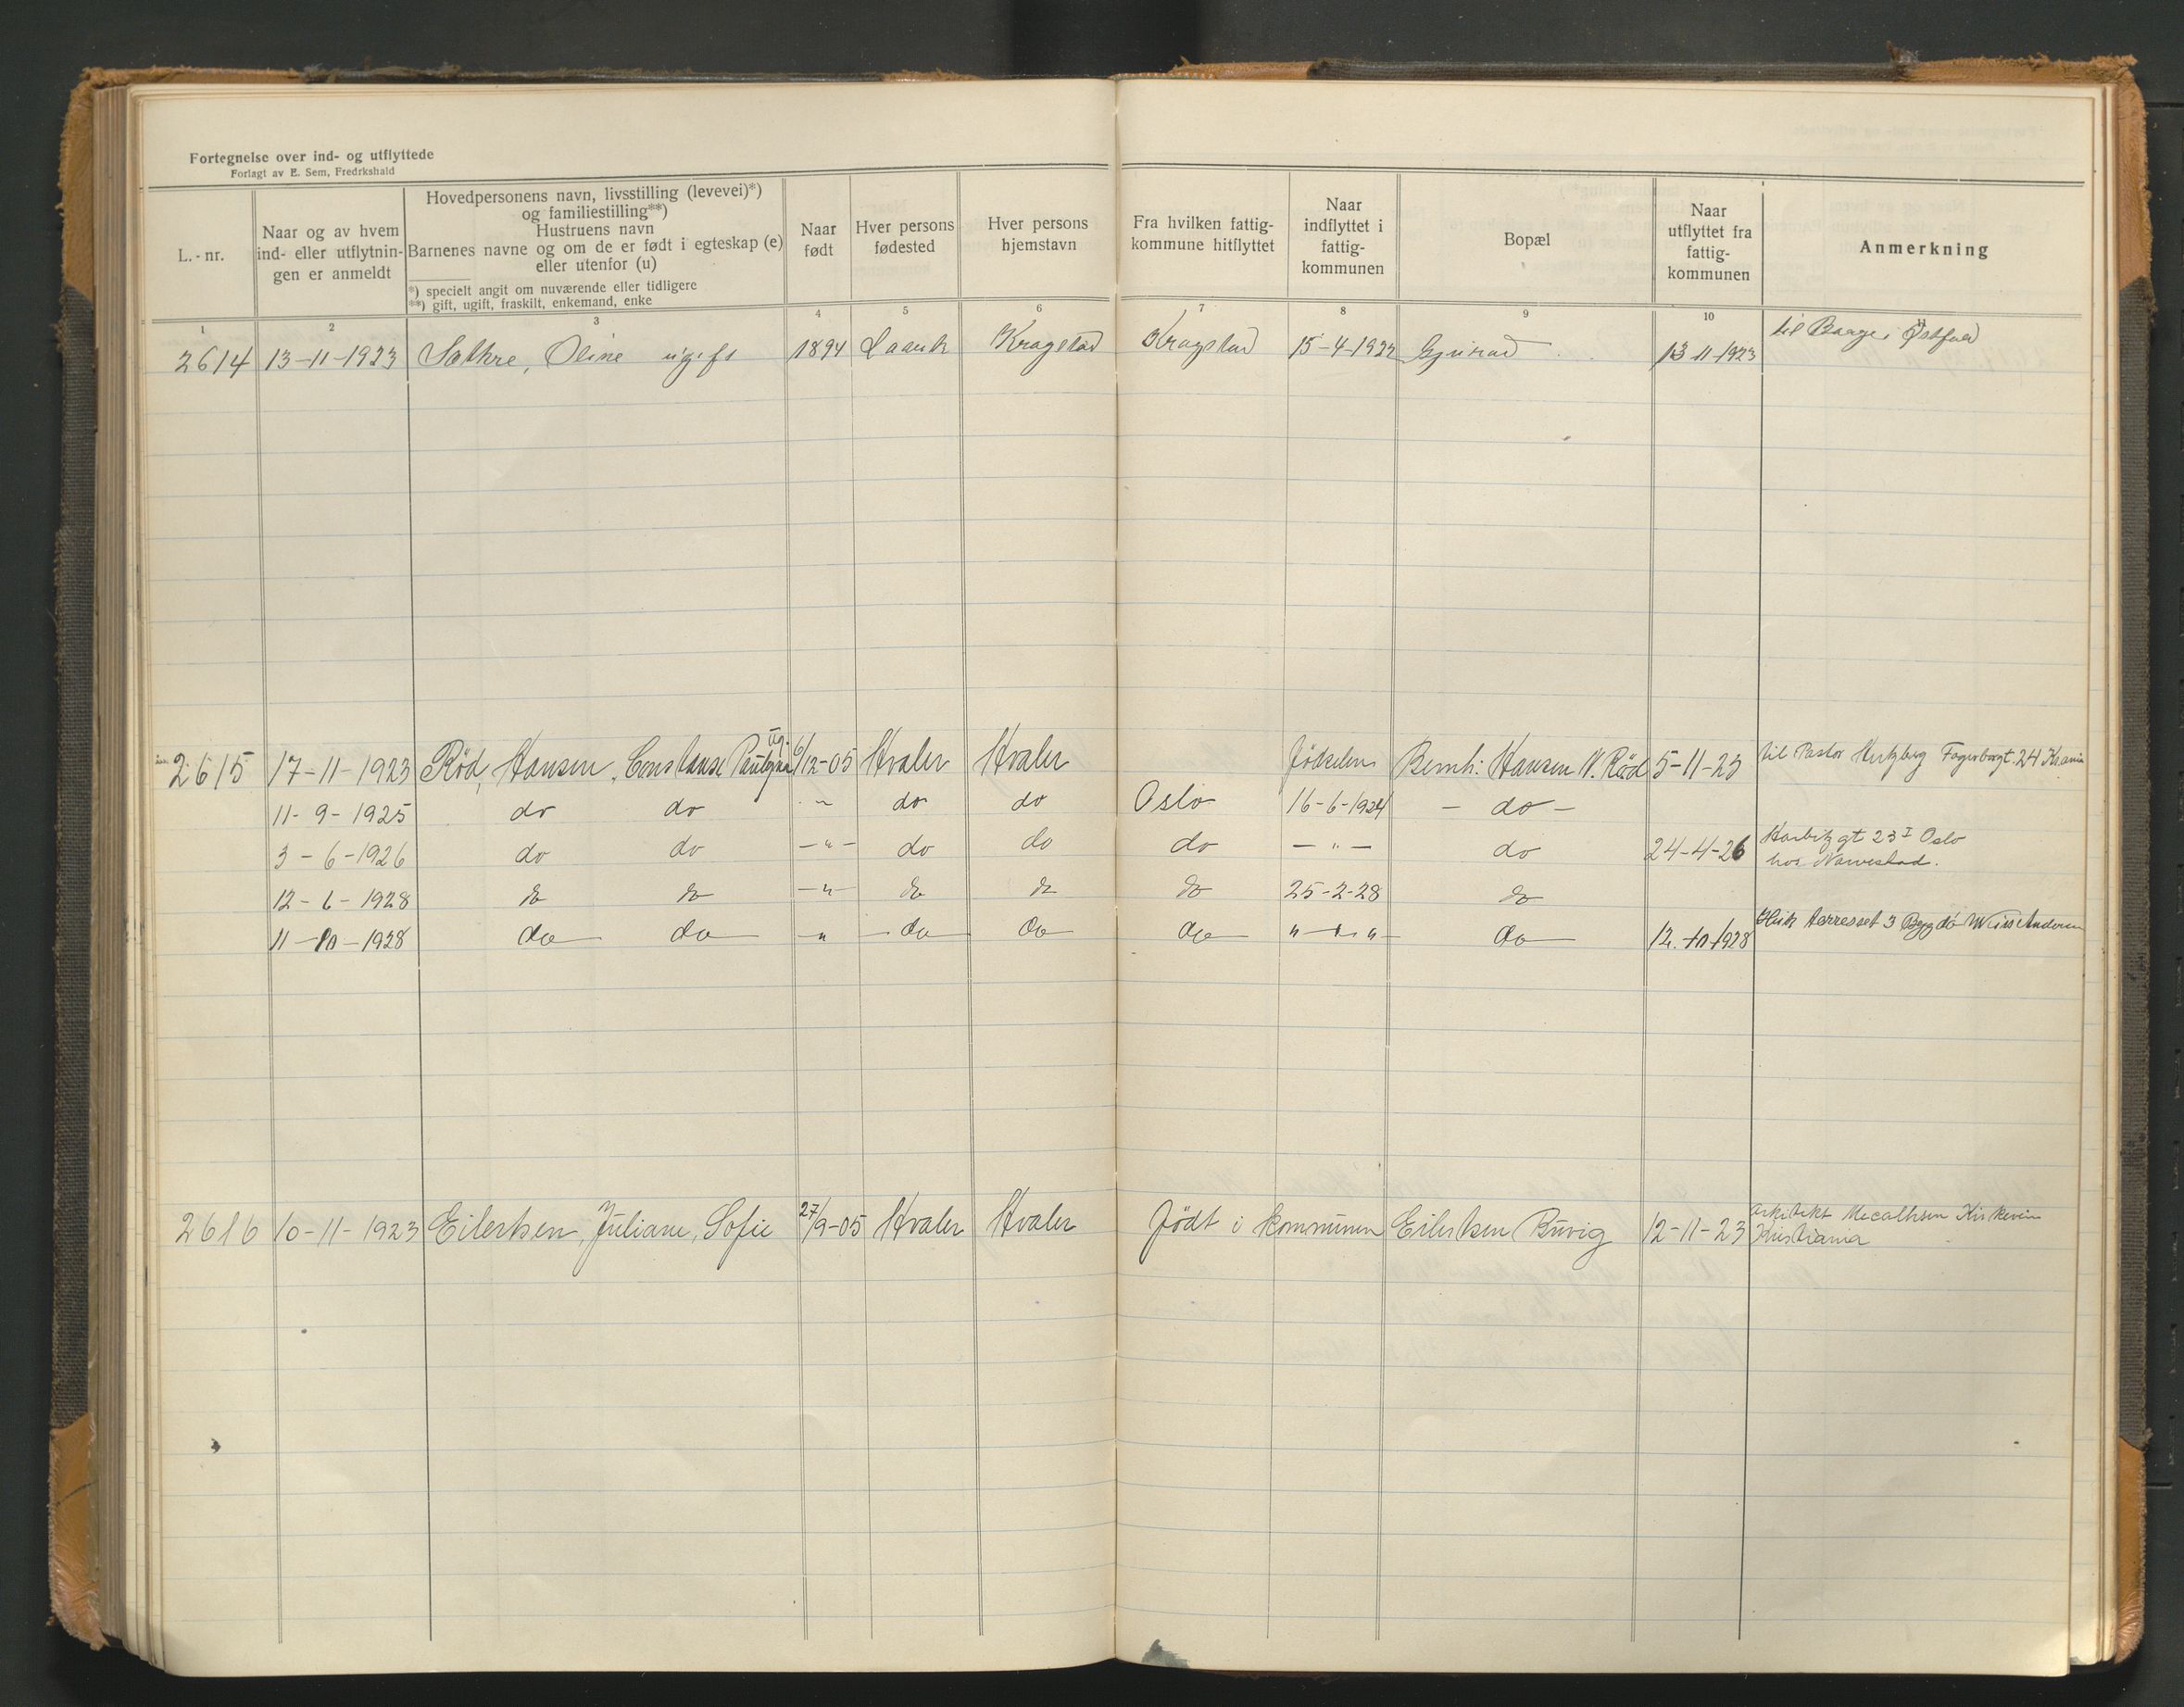 Fortegnelse over ind- og utflyttede
Forlagt av E. Sem, Fredrkshald
L.-nr.
Naar og av hvem
ind- eller utflytnin-
gen er anmeldt
Hovedpersonens navn, livsstilling (levevei)*)
og familiestilling**)
Hustruens navn
Barnenes navne og om de er født i egteskap (e)
eller utenfor (u)
*) specielt angit om nuværende eller tidligere
**) gift, ugift, fraskilt, enkemand, enke
Naar
født
Hver persons
fødested
Hver persons
hjemstavn
Fra hvilken fattig-
kommune hitflyttet
Naar
indflyttet i
fattig-
kommunen
Bopæl
Naar
utflyttet fra
fattig-
kommunen
Anmerkning
1 2 3 4 5 6 7 8 9 10 11
2614 13-11-1923 Sæthre, Oline ugift 1894 Kragstad Kragstad 15-4-1922 13-11-1923 til Østfold
2615 17-11-1923 Rød, Hansen, Constanse ug. 6/12-05 Hvaler Hvaler fødselen Bernh. Hansen N. Rød 5-11-23 til Pastor Hertzberg Fagerborgt. 24 Kr.ania
11-9-1925 do do -"- do do Oslo 16-6-1924 - do -
3-6-1926 do do -"- do do do -"- do 24-4-26 Harbitz gt 23 I Oslo
hos Narvestad.
12-6-1928 do do -"- do do do 25-2-28 do
11-10-1928 do do -"- do do do "-"-"- do 12-10-1928 terresset 3 Bygdø
2616 10-11-1923 Eilertsen, Juliane, Sofie 27/9-05 Hvaler Hvaler født i kommunen Eilertsen Buvig 12-11-23 arkitekt Kirkevein
Kristiania